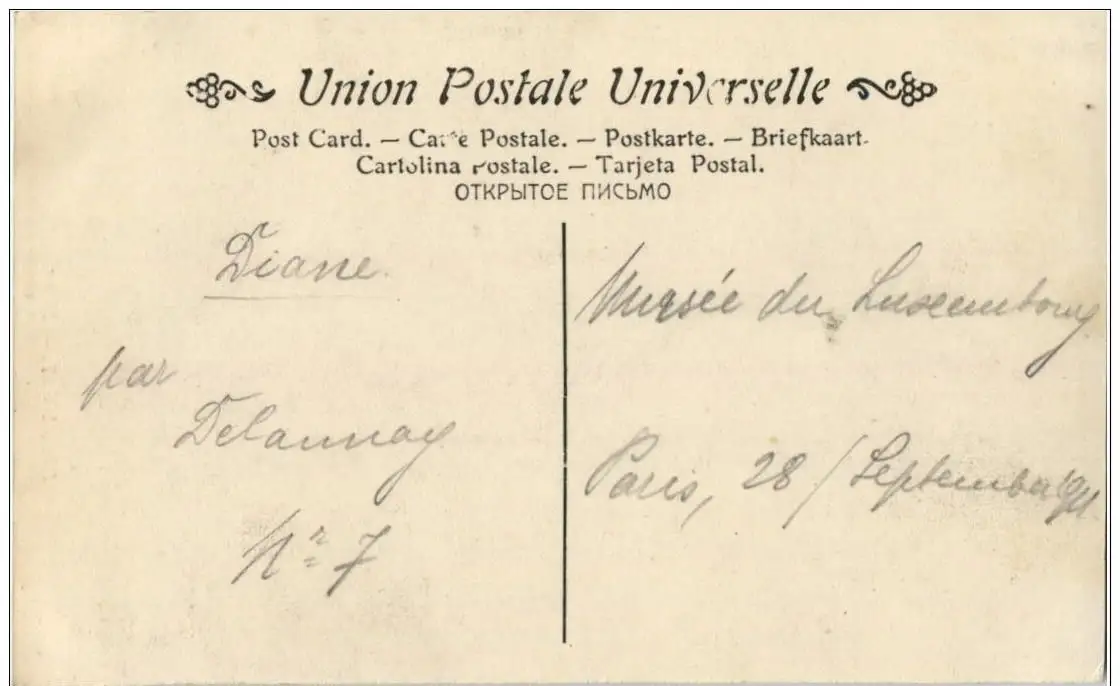 Union Postale Universelle
Post Card. — Carte Postale. — Postkarte. — Briefkaart.
Cartolina Postale. — Tarjeta Postal.
ОТКРЫТОЕ ПИСЬМО
Diane.
par
Delaunay
Nr 7
Musée du Luxembourg
Paris, 28 / September